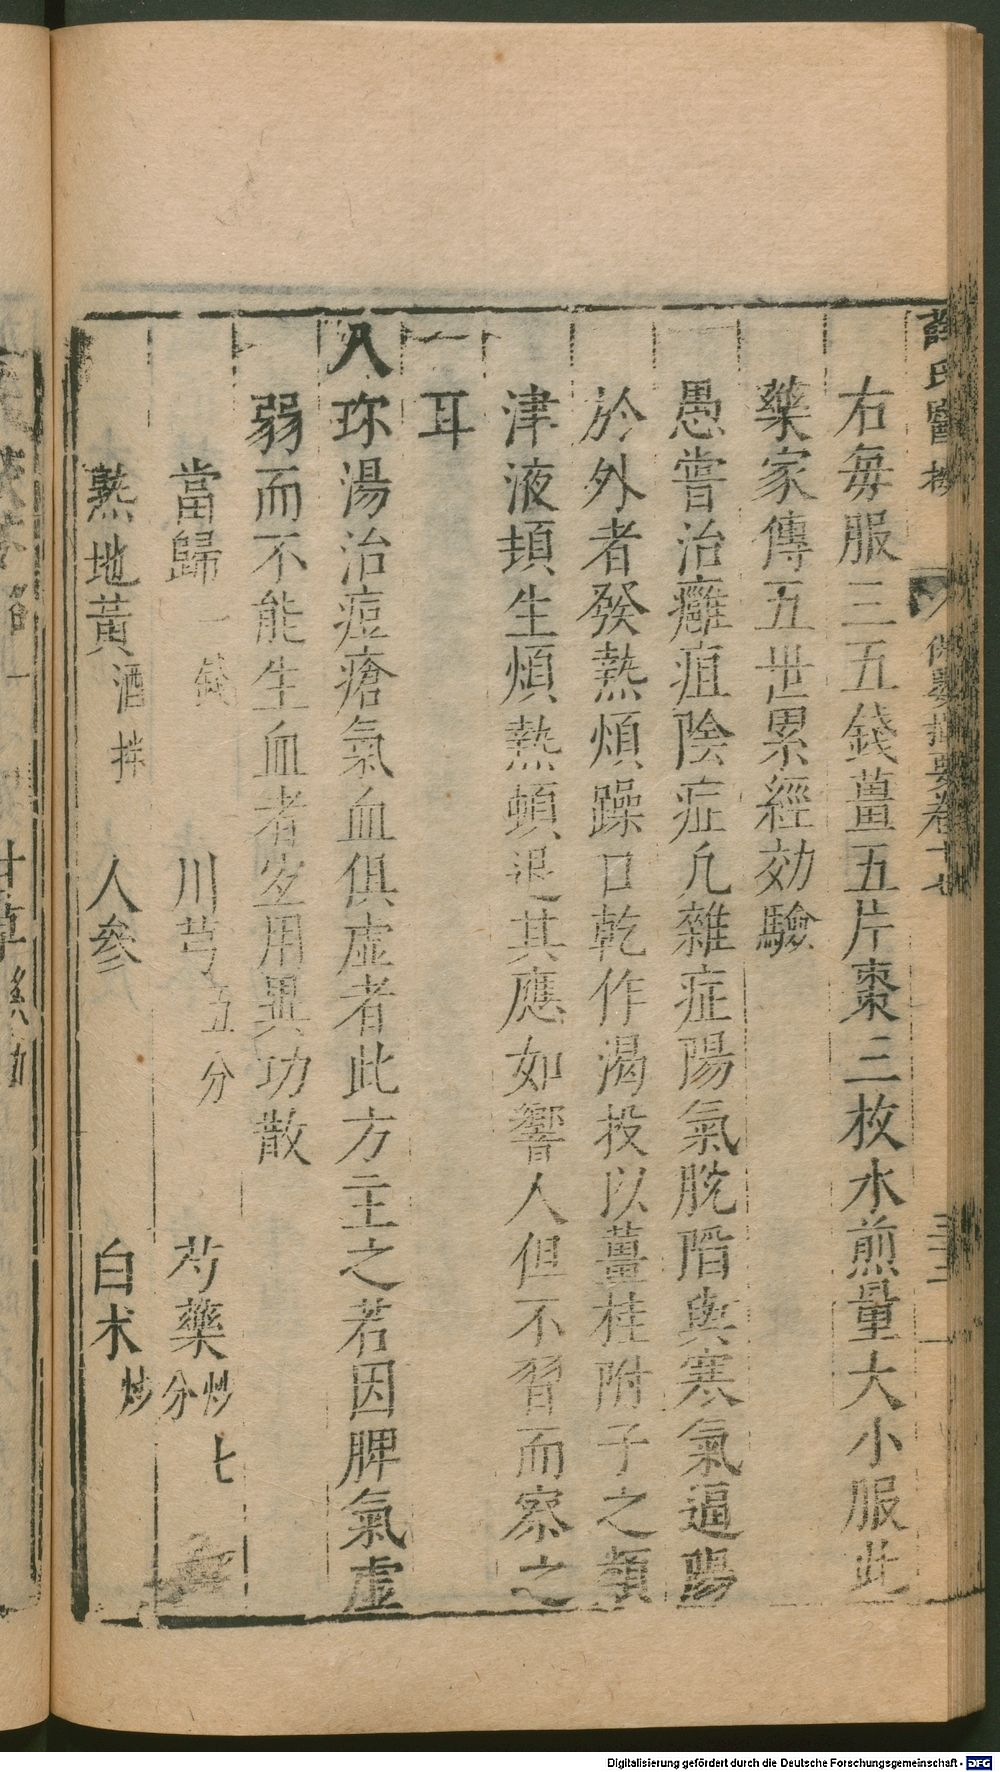 右每服三五錢薑五片棗三枚水煎量大小服此
藥家傳五世累經効驗
愚嘗治癰疽陰症凢雜症陽氣脫陷與寒氣逼陽
於外者發熱煩躁口乾作渴投以薑桂附子之類
津液頓生煩熱頓退其應如響人但不習而察之
耳
八珎湯治痘瘡氣血俱虛者此方主之若因脾氣虛
弱而不能生血者宜用異功散
當歸一錢 川芎五分 芍藥炒七分
熟地黃酒拌 人參 白术炒
Digitalisierung gefördert durch die Deutsche Forschungsgemeinschaft - DFG